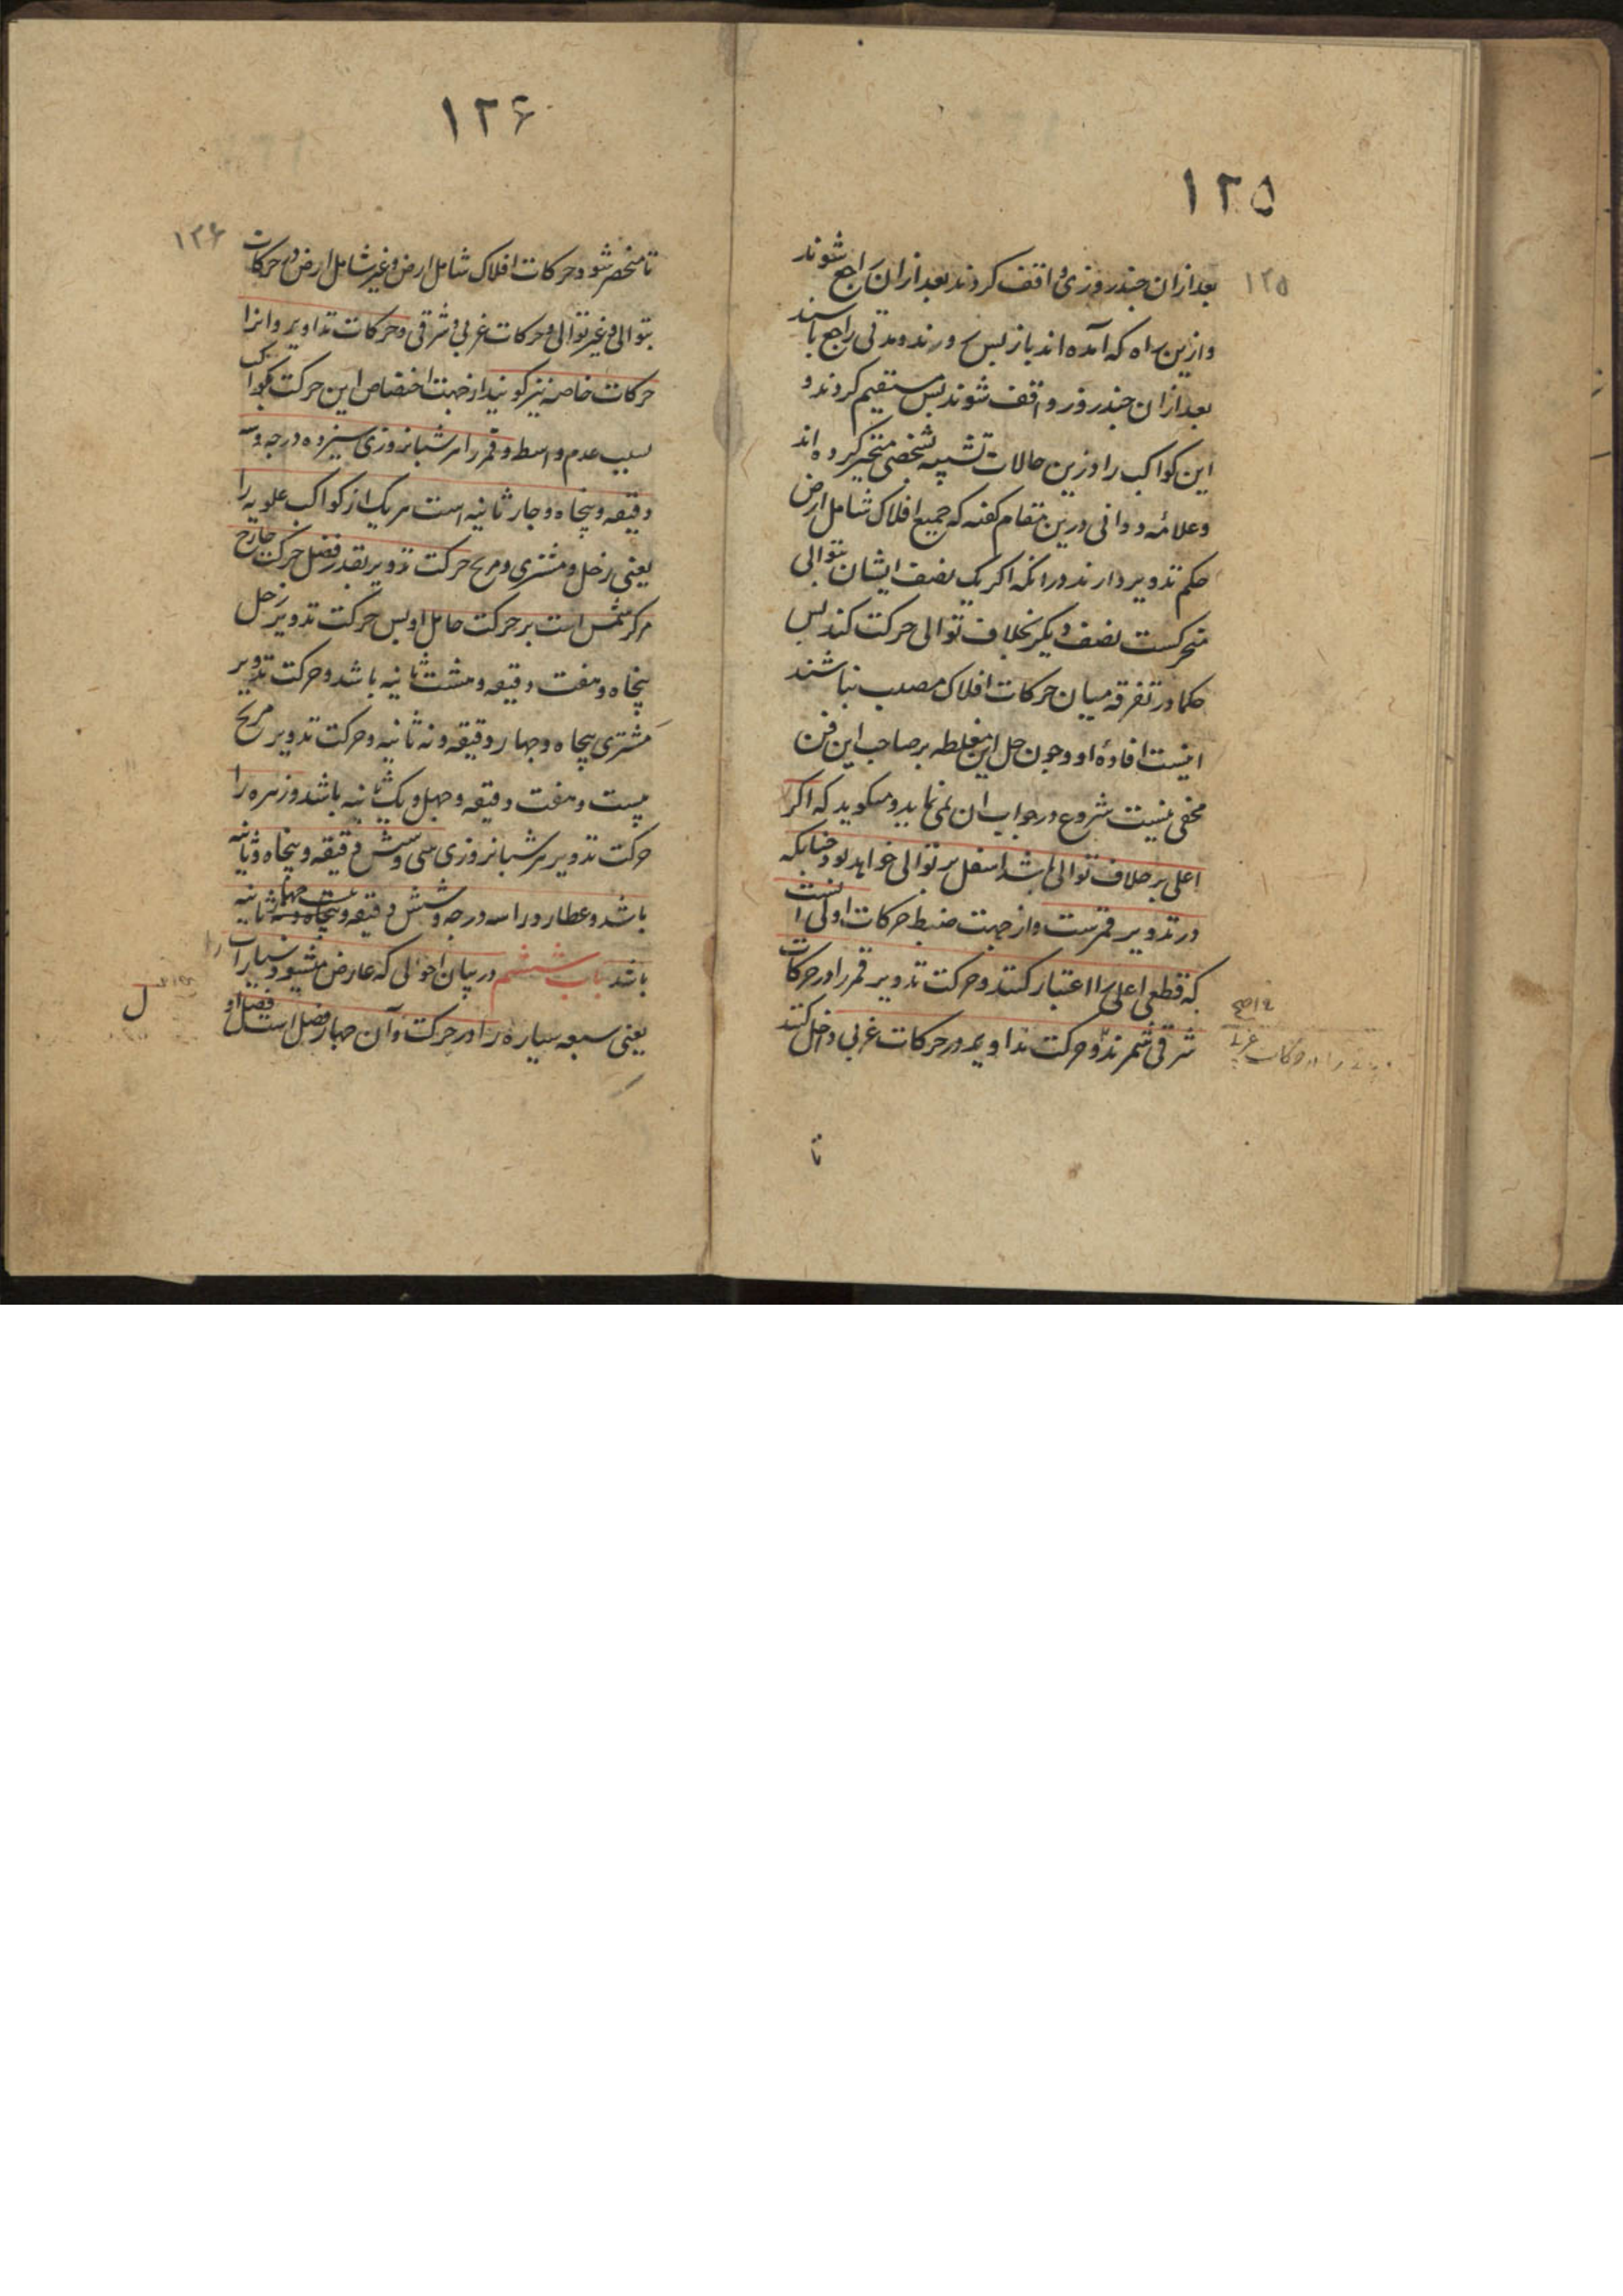 ۱۲۵
۱۲۵
بعد ازان چند روزی واقف کردند بعد ازان راجع شوند
و ازین راه که آمده اند باز پس روند و مدتی راجع باشند
بعد ازان چند روز واقف شوند پس مستقیم کردند و
این کواکب را درین حالات تشبیه بشخص متحیر کرده اند
و علامه دوانی درین مقام کفته که جمیع افلاک شامل ارض
حکم تدویر دارند در انکه اکر یک نصف ایشان بتوالی
متحرکست نصف دیکر بخلاف توالی حرکت کند پس
حکما در تفرقه میان حرکات افلاک مصیب نباشند
اینست افادهٔ او و چون حل این مغلطه بر صاحب این فن
مخفی نیست شروع در جواب ان نمی نماید و میکوید که اکر
اعلی بر خلاف توالی باشد اسفل بر توالی خواهد بود چنانکه
در تدویر قمرست و از جهت ضبط حرکات اولی انست
که قطعی اعلی را اعتبار کنند و حرکت تدویر قمر را در حرکات
شرقی شمرند و حرکت تداویر در حرکات غربی داخل کنند
تا
۱۲۶
۱۲۶
تا منحصر شود حرکات افلاک شامل ارض و غیر شامل ارض در حرکات
بتوالی و غیر توالی و حرکات غربی و شرقی و حرکات تداویر و انرا
حرکات خاصه نیز کویند از جهت اختصاص این حرکت بکواکب
بسبب عدم واسطه و قمر را هر شبانروزی سیزده درجه و سه
دقیقه و پنجاه و چار ثانیه است هر یک از کواکب علویه را
یعنی زحل و مشتری و مریخ حرکت تدویر بقدر فضل حرکت خارج
مرکز شمس است بر حرکت حامل او پس حرکت تدویر زحل
پنجاه و هفت دقیقه و هشت ثانیه باشد و حرکت تدویر
مشتری پنجاه و چهار دقیقه و نه ثانیه و حرکت تدویر مریخ
بیست و هفت دقیقه و چهل و یک ثانیه باشد و زهره را
حرکت تدویر هر شبانروزی سی و شش دقیقه و پنجاه و ثانیه
باشد و عطارد را سه درجه و شش دقیقه و بیست چهار ثانیه
باشد باب ششم در بیان احوالی که عارض میشود سیارات را
یعنی سبعه سیاره را در حرکت و آن چهار فصل است فصل او
ل